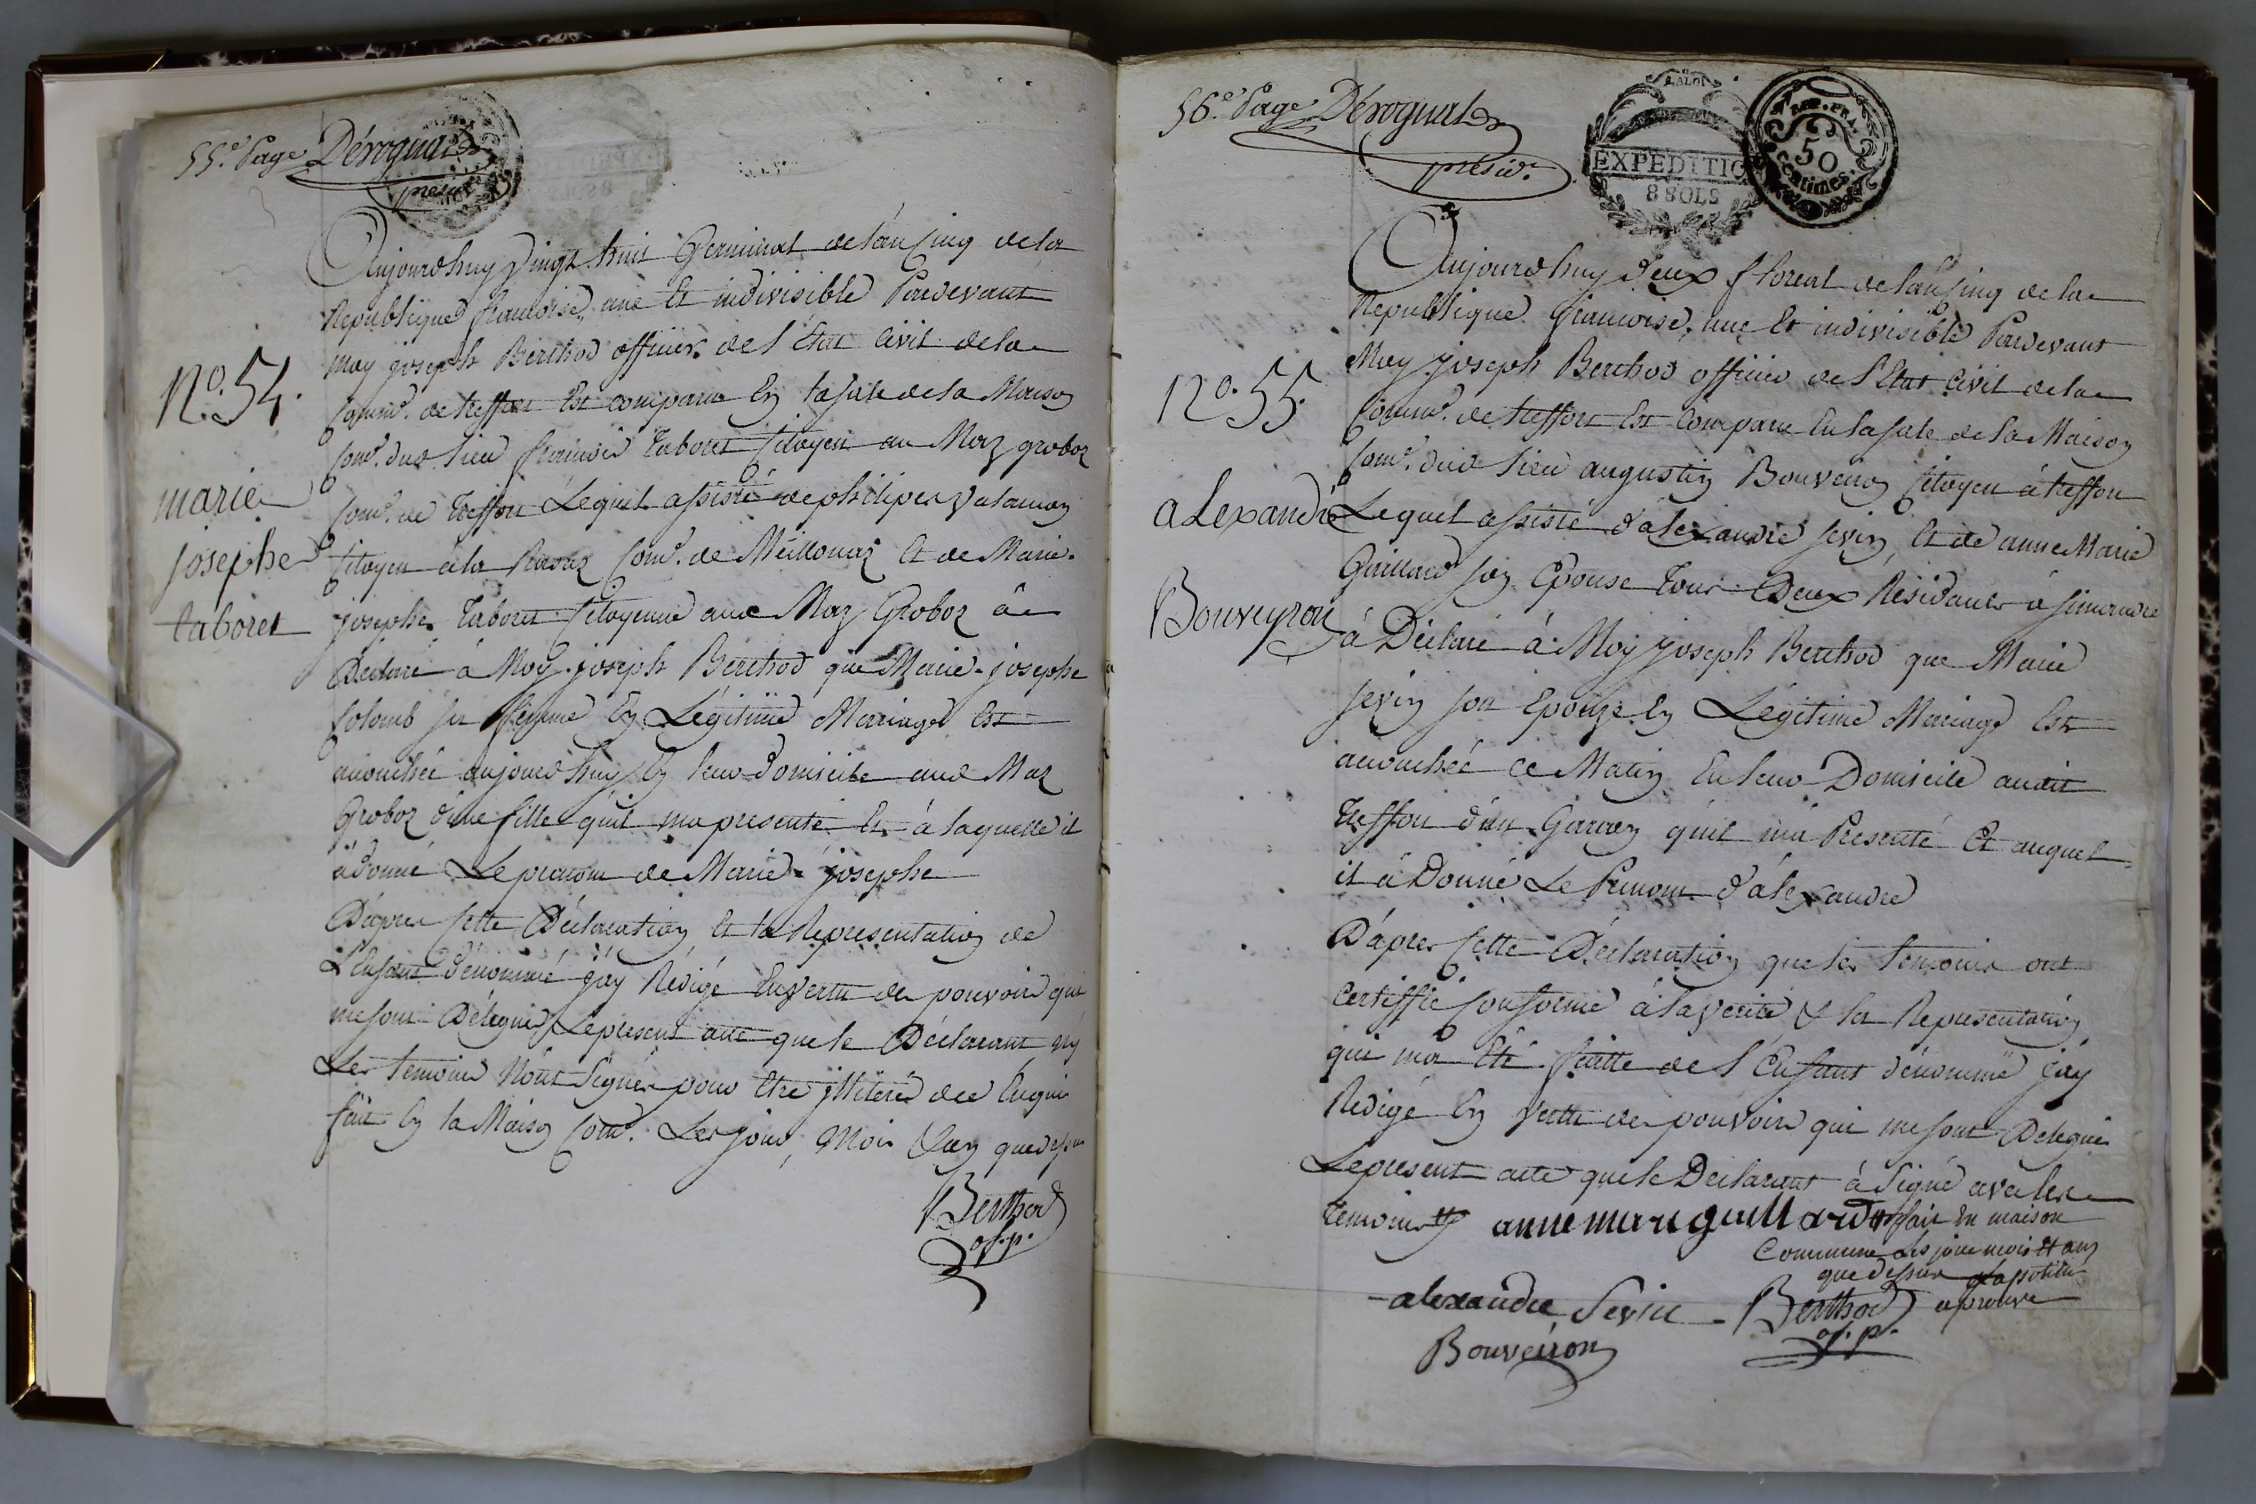 55.e Page Dérognat
présid.
Aujourdhuy Vingt huit Germinal de l'an Cinq de la
Republique francoise, une Et indivisible Pardevant
moy joseph Berthod officier de l'Etat Civil de la
Comm.e de treffort Est comparu En la sale de la Maison
Com.e dud. lieu francois taboret Citoyen au Maz groboz
Com.e de treffort Lequel assisté de philiper valancon
Citoyen à la Com.e de Meillonaz Et de Marie
josephe taboret Citoyenne aud Maz Groboz à
Declaré à Moy joseph Berthod que Marie-josephe
Colomb sa femme En Légitime Marriage Est
acouchée aujourdhuy En leur Domicile aud Maz
Groboz d'une fille qu'il m'a presenté Et à laquelle il
à donné Le prenom de Marie-josephe
D'après Cette Déclaration Et la Representation de
L'Enfant dénommé j'ay Rédigé En vertu des pouvoirs qui
me sont Délegués Le present acte que le Déclarant ny
Les temoins N'ont Signés pour Etre illiterés de ce Enquis
fait En la Maison Com.e Les jour, Mois & an que dessus
Berthod
of. p.
N.o 54.
marie
josephe
taboret
56.e Page Dérognat
présid.
EXPEDITION
8 SOLS
REP. FRA.
50
Centimes.
Aujourdhuy deux floreal de l'an Cinq de la
Republique francoise, une Et indivisible Pardevant
Moy joseph Berthod officier de l'Etat Civil de la
Comm.e de treffort Est Comparu En la sale de la Maison
Com.e dud. lieu augustin Bouveiron Citoyen à treffort
Lequel assisté d'alexandre sevin Et de anne Marie
Guillard son Epouse tous Deux Résidants à simandre
à Déclaré à Moy joseph Berthod que Marie
sevin son Epouze En Légitime Mariage Est
acouchée ce Matin En leur Domicile audit
treffort d'un Garcon qu'il m'a Presenté Et auquel
il à Donné Le Prenom d'alexandre
D'après Cette Déclaration que les temoins ont
Certiffié Conforme à la verité & la Representation
qui m'a Eté faitte de l'Enfant dénommé j'ay
Redigé En vertu des pouvoirs qui me sont Delegués
Le present acte que le Declarant à Signé avec les
temoins anne marie guillard fait En maison
Commune les jour mois Et an
que dessus
aprouvé
alexandre Sevin Berthod
of. p.
Bouveiron
N.o 55.
alexandre
Bouveyron